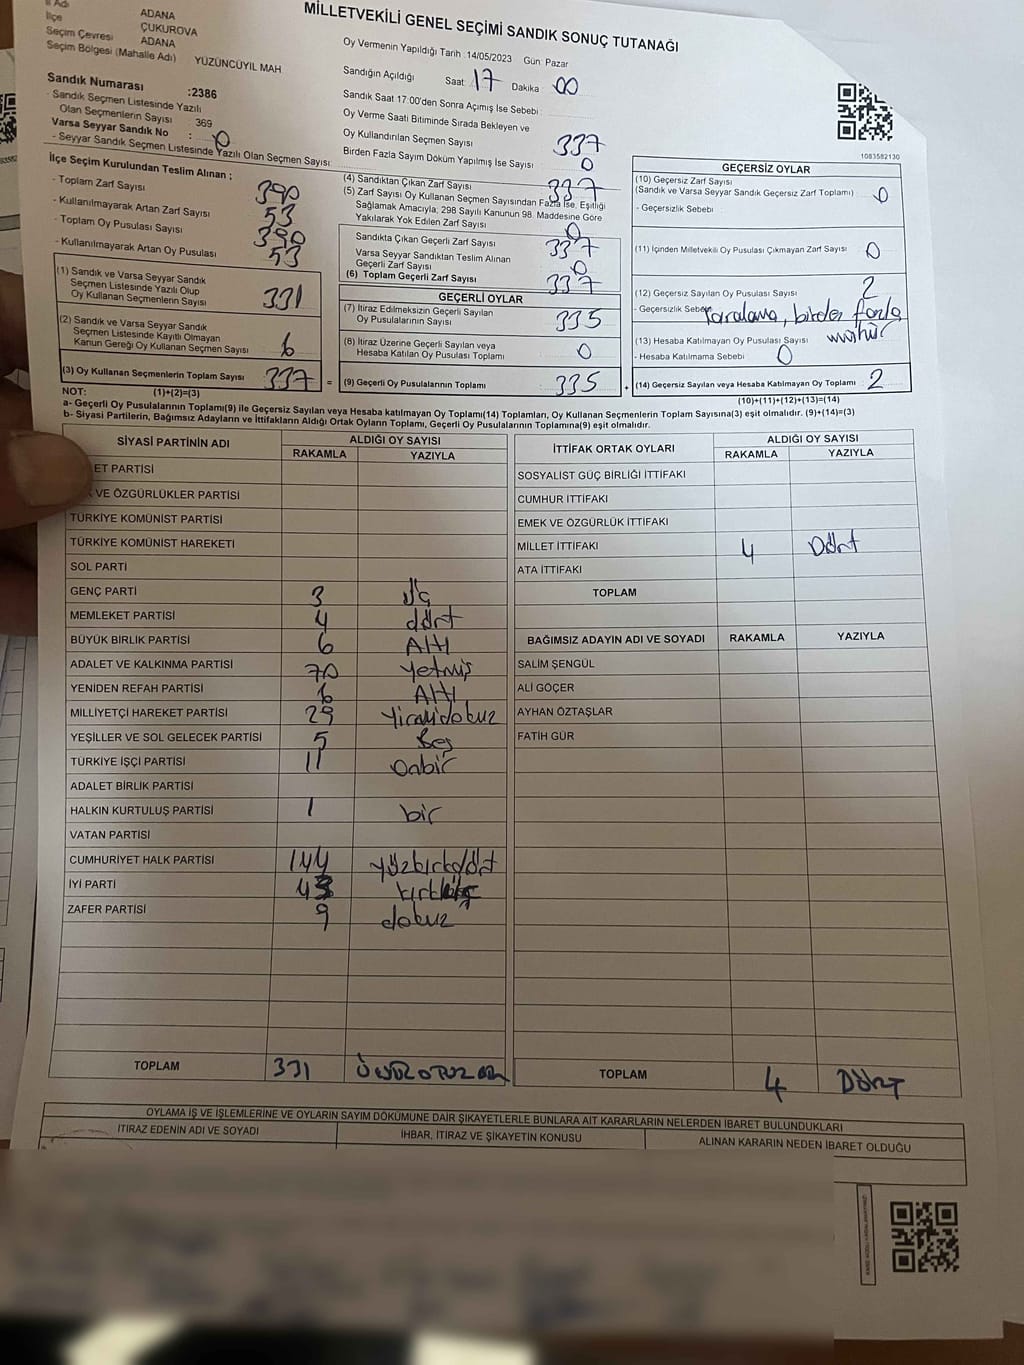 İl Adı ADANA
İlçe ÇUKUROVA
Seçim Çevresi ADANA
Seçim Bölgesi (Mahalle Adı) YÜZÜNCÜYIL MAH
MİLLETVEKİLİ GENEL SEÇİMİ SANDIK SONUÇ TUTANAĞI
Oy Vermenin Yapıldığı Tarih :14/05/2023 Gün: Pazar
Sandığın Açıldığı Saat 17 Dakika 00
Sandık Saat 17:00'den Sonra Açımış İse Sebebi :
Oy Verme Saati Bitiminde Sırada Bekleyen ve
Oy Kullandırılan Seçmen Sayısı 337
Birden Fazla Sayım Döküm Yapılmış İse Sayısı 0
Sandık Numarası :2386
- Sandık Seçmen Listesinde Yazılı
Olan Seçmenlerin Sayısı : 369
Varsa Seyyar Sandık No : 0
- Seyyar Sandık Seçmen Listesinde Yazılı Olan Seçmen Sayısı:
İlçe Seçim Kurulundan Teslim Alınan ;
- Toplam Zarf Sayısı 390
- Kullanılmayarak Artan Zarf Sayısı 53
- Toplam Oy Pusulası Sayısı 390
- Kullanılmayarak Artan Oy Pusulası 53
(1) Sandık ve Varsa Seyyar Sandık
Seçmen Listesinde Yazılı Olup
Oy Kullanan Seçmenlerin Sayısı 331
(2) Sandık ve Varsa Seyyar Sandık
Seçmen Listesinde Kayıtlı Olmayan
Kanun Gereği Oy Kullanan Seçmen Sayısı 6
(3) Oy Kullanan Seçmenlerin Toplam Sayısı 337 =
(1)+(2)=(3)
(4) Sandıktan Çıkan Zarf Sayısı 337
(5) Zarf Sayısı Oy Kullanan Seçmen Sayısından Fazla İse, Eşitliği
Sağlamak Amacıyla, 298 Sayılı Kanunun 98. Maddesine Göre
Yakılarak Yok Edilen Zarf Sayısı 0
Sandıkta Çıkan Geçerli Zarf Sayısı 337
Varsa Seyyar Sandıktan Teslim Alınan
Geçerli Zarf Sayısı 0
(6) Toplam Geçerli Zarf Sayısı 337
GEÇERLİ OYLAR
(7) İtiraz Edilmeksizin Geçerli Sayılan
Oy Pusulalarının Sayısı 335
(8) İtiraz Üzerine Geçerli Sayılan veya
Hesaba Katılan Oy Pusulası Toplamı 0
(9) Geçerli Oy Pusulalarının Toplamı 335 +
1083582130
GEÇERSİZ OYLAR
(10) Geçersiz Zarf Sayısı
(Sandık ve Varsa Seyyar Sandık Geçersiz Zarf Toplamı) 0
- Geçersizlik Sebebi
(11) İçinden Milletvekili Oy Pusulası Çıkmayan Zarf Sayısı 0
(12) Geçersiz Sayılan Oy Pusulası Sayısı 2
- Geçersizlik Sebebi karalama, birden fazla
mühür
(13) Hesaba Katılmayan Oy Pusulası Sayısı
- Hesaba Katılmama Sebebi 0
(14) Geçersiz Sayılan veya Hesaba Katılmayan Oy Toplamı 2
(10)+(11)+(12)+(13)=(14)
NOT:
a- Geçerli Oy Pusulalarının Toplamı(9) ile Geçersiz Sayılan veya Hesaba katılmayan Oy Toplamı(14) Toplamları, Oy Kullanan Seçmenlerin Toplam Sayısına(3) eşit olmalıdır. (9)+(14)=(3)
b- Siyasi Partilerin, Bağımsız Adayların ve İttifakların Aldığı Ortak Oyların Toplamı, Geçerli Oy Pusulalarının Toplamına(9) eşit olmalıdır.
SİYASİ PARTİNİN ADI ALDIĞI OY SAYISI
RAKAMLA YAZIYLA
ET PARTİSİ
VE ÖZGÜRLÜKLER PARTİSİ
TÜRKİYE KOMÜNİST PARTİSİ
TÜRKİYE KOMÜNİST HAREKETİ
SOL PARTİ
GENÇ PARTİ 3 üç
MEMLEKET PARTİSİ 4 dört
BÜYÜK BİRLİK PARTİSİ 6 Altı
ADALET VE KALKINMA PARTİSİ 70 Yetmiş
YENİDEN REFAH PARTİSİ 6 Altı
MİLLİYETÇİ HAREKET PARTİSİ 29 Yirmidokuz
YEŞİLLER VE SOL GELECEK PARTİSİ 5 Beş
TÜRKİYE İŞÇİ PARTİSİ 11 Onbir
ADALET BİRLİK PARTİSİ
HALKIN KURTULUŞ PARTİSİ 1 bir
VATAN PARTİSİ
CUMHURİYET HALK PARTİSİ 144 yüzkırkdört
İYİ PARTİ 43 kırküç
ZAFER PARTİSİ 9 dokuz
TOPLAM 331 ÜÇYÜZOTUZBİR
İTTİFAK ORTAK OYLARI ALDIĞI OY SAYISI
RAKAMLA YAZIYLA
SOSYALİST GÜÇ BİRLİĞİ İTTİFAKI
CUMHUR İTTİFAKI
EMEK VE ÖZGÜRLÜK İTTİFAKI
MİLLET İTTİFAKI 4 Dört
ATA İTTİFAKI
TOPLAM
BAĞIMSIZ ADAYIN ADI VE SOYADI RAKAMLA YAZIYLA
SALİM ŞENGÜL
ALİ GÖÇER
AYHAN ÖZTAŞLAR
FATİH GÜR
TOPLAM 4 DÖRT
OYLAMA İŞ VE İŞLEMLERİNE VE OYLARIN SAYIM DÖKÜMÜNE DAİR ŞİKAYETLERLE BUNLARA AİT KARARLARIN NELERDEN İBARET BULUNDUKLARI
İTİRAZ EDENİN ADI VE SOYADI İHBAR, İTİRAZ VE ŞİKAYETİN KONUSU ALINAN KARARIN NEDEN İBARET OLDUĞU